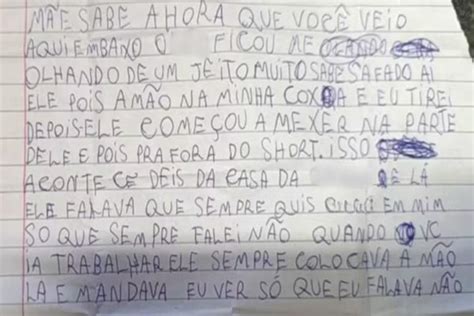 MÃE SABE A HORA QUE VOCÊ VEIO
AQUI EMBAXO O FICOU ME
OLHANDO DE UM JEITO MUITO SABE SAFADO AI
ELE POIS A MÃO NA MINHA COXA E EU TIREI
DEPOIS ELE COMEÇOU A MEXER NA PARTE
DELE E POIS PRA FORA DO SHORT. ISSO
ACONTECE DEIS DA CASA DA LÁ
ELE FALAVA QUE SEMPRE QUIS EM MIM
SO QUE SEMPRE FALEI NÃO QUANDO VC
IA TRABALHAR ELE SEMPRE COLOCAVA A MÃO
LA E MANDAVA EU VER SÓ QUE EU FALAVA NÃO